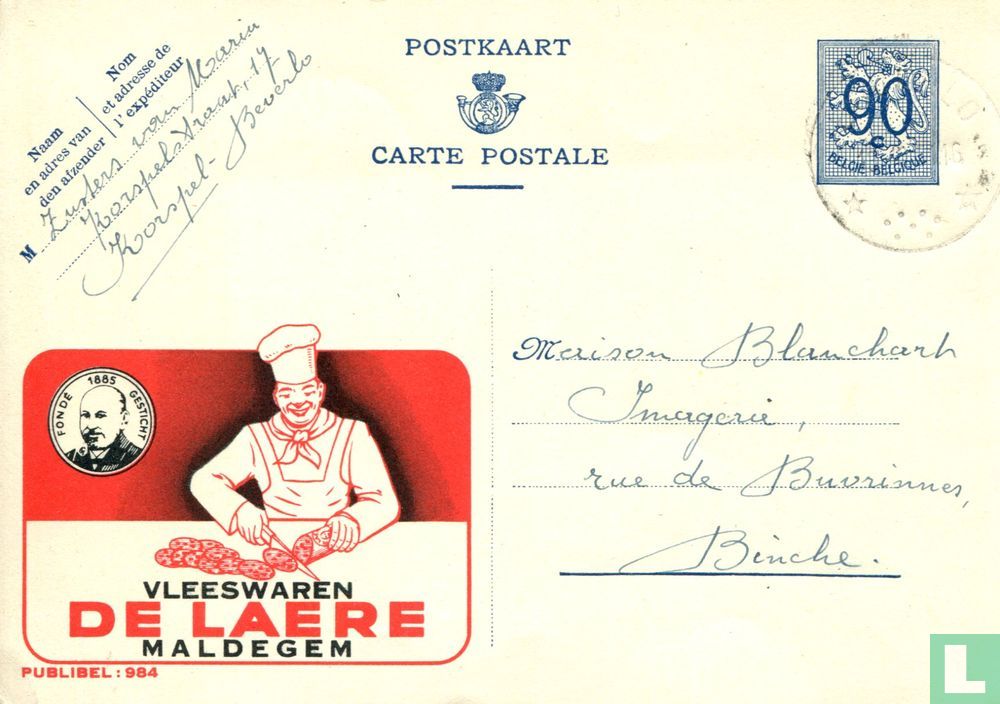 Naam
en adres van
den afzender
Nom
et adresse de
l'expéditeur
M Zusters van Maria
Korspelstraat, 17
Korspel - Beverlo
POSTKAART
CARTE POSTALE
90
c
BELGIE BELGIQUE
LO
16
Maison Blanchart
Imagerie,
rue de Buvrinnes,
Binche.
FONDÉ 1885 GESTICHT
VLEESWAREN
DE LAERE
MALDEGEM
PUBLIBEL : 984
L